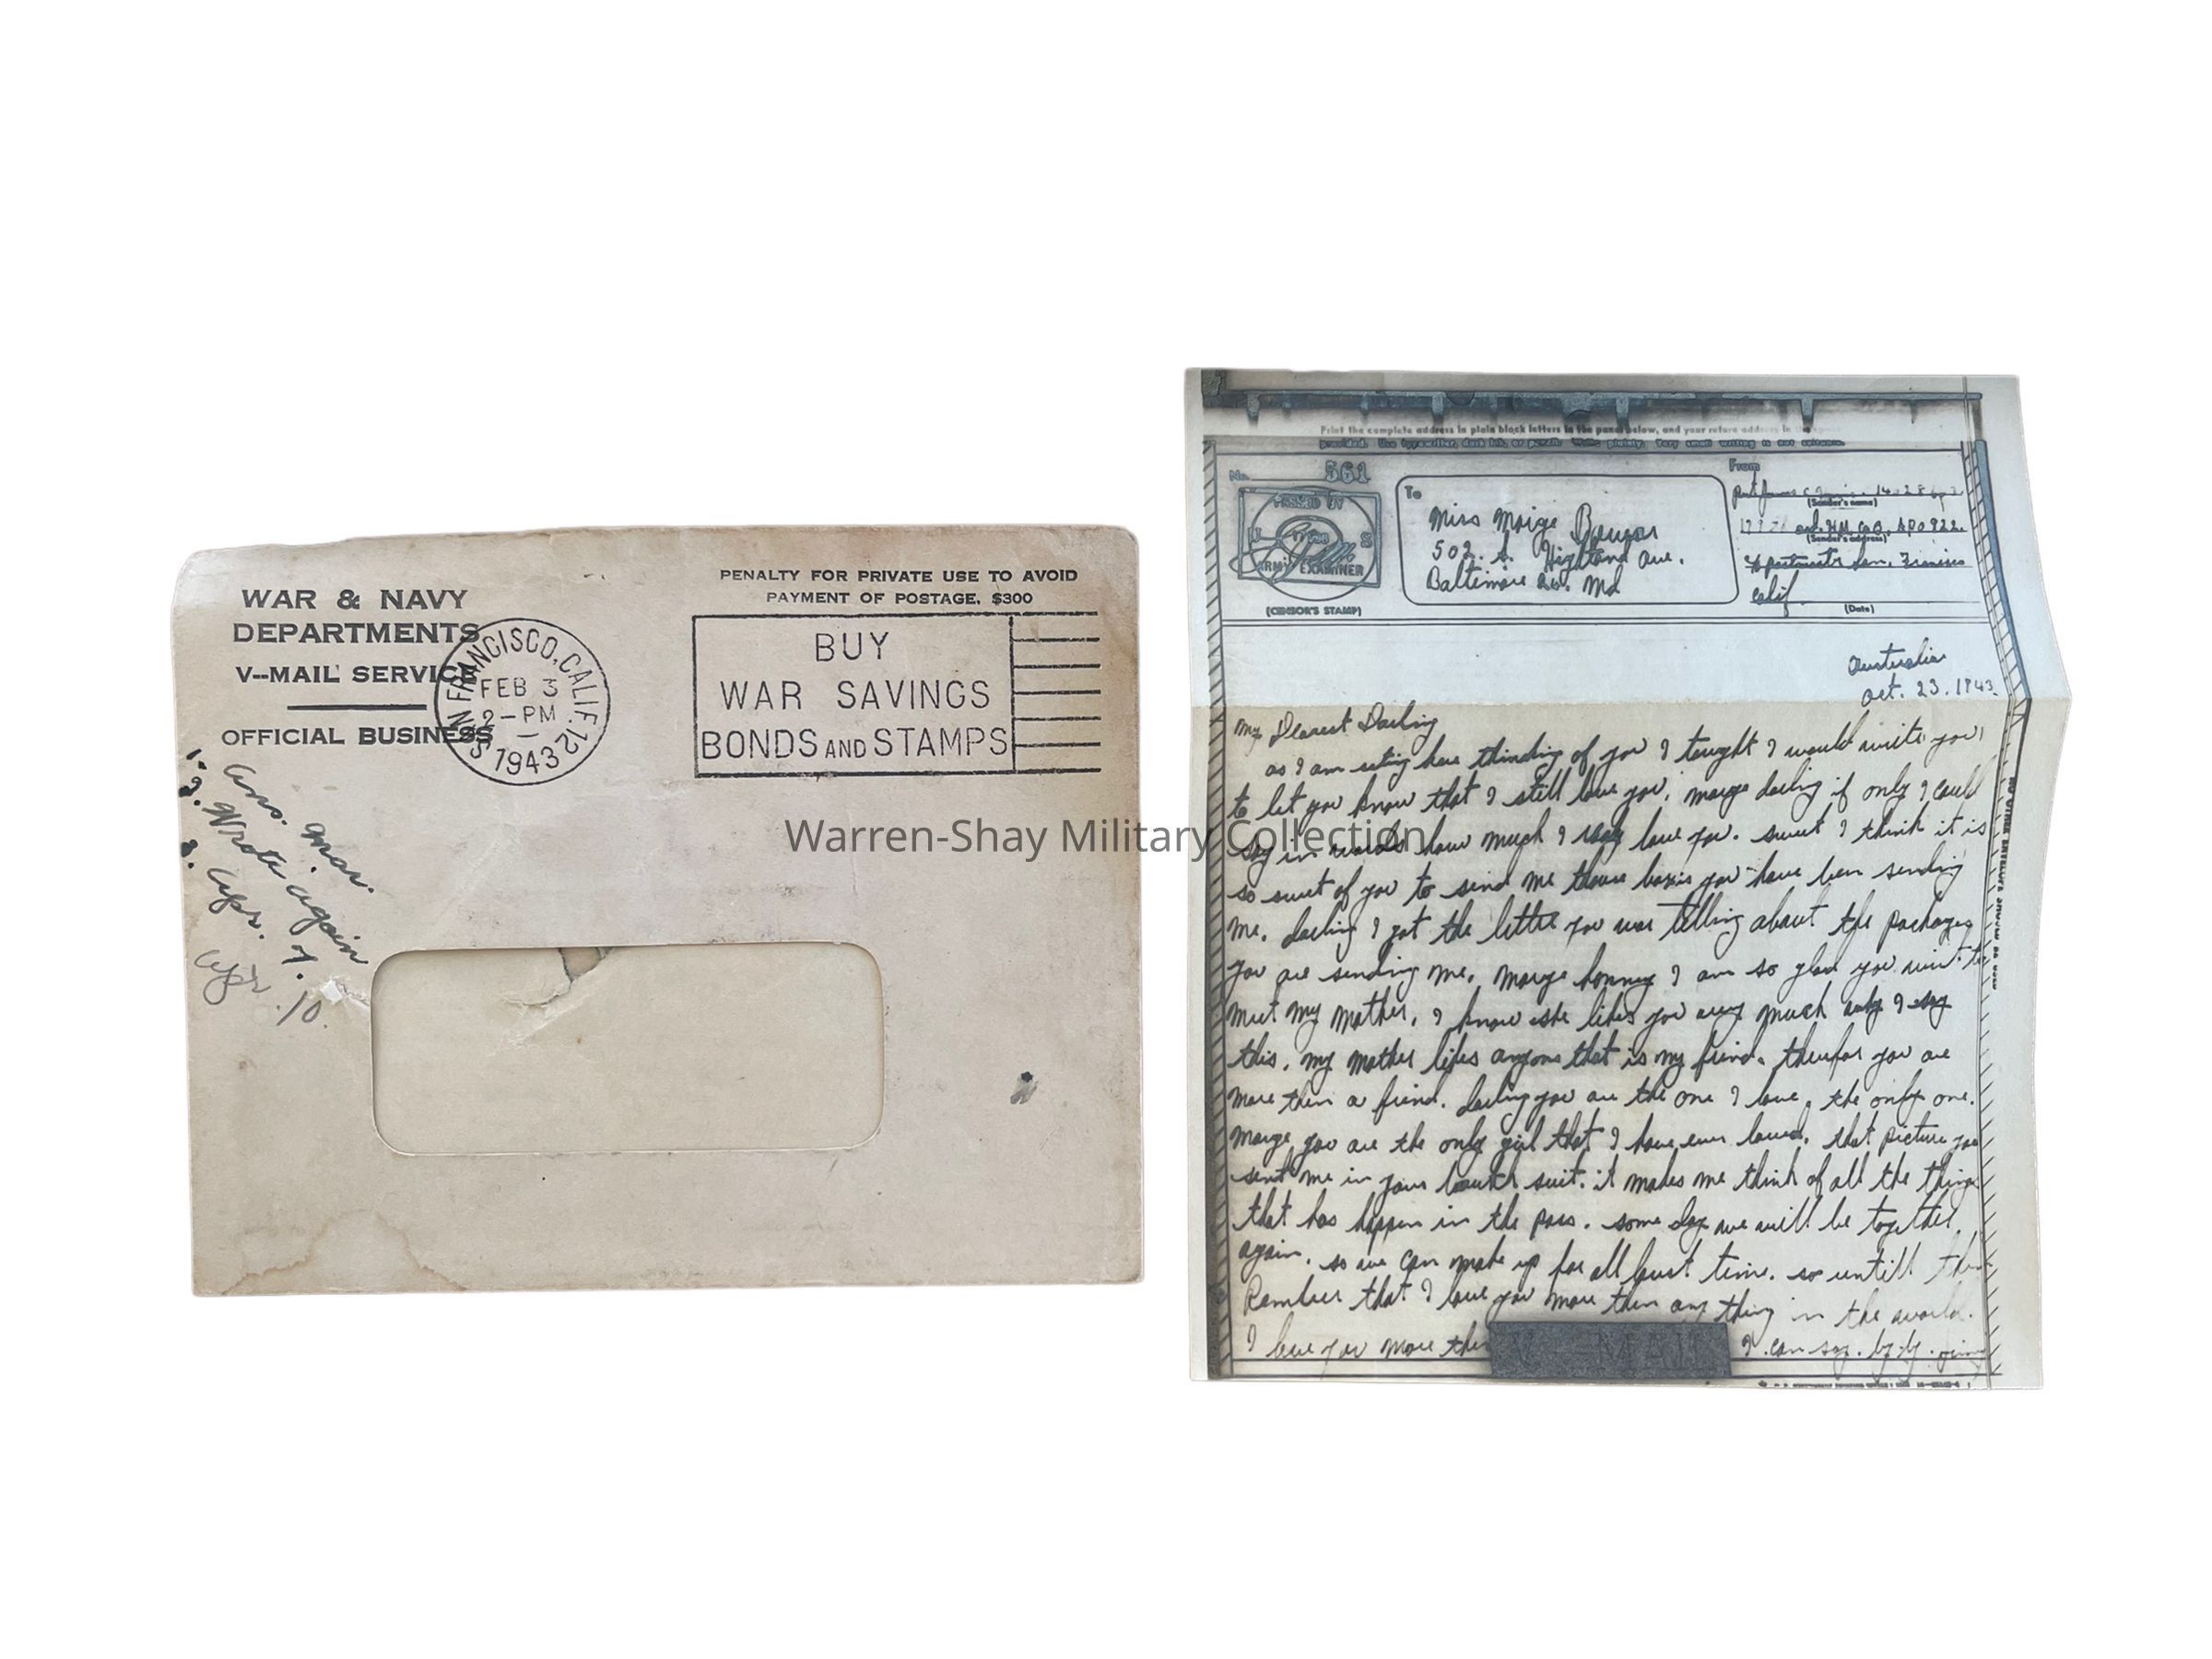 WAR & NAVY
DEPARTMENTS
V--MAIL SERVICE
OFFICIAL BUSINESS
SAN FRANCISCO, CALIF. 12
FEB 3
2-PM
1943
PENALTY FOR PRIVATE USE TO AVOID
PAYMENT OF POSTAGE, $300
BUY
WAR SAVINGS
BONDS AND STAMPS
1. Ans. Mar.
2. Wrote again
3. Apr. 7.
Apr. 10.
Warren-Shay Military Collection
Print the complete address in plain block letters in the panel below, and your return address in the
provided. Use typewriter, dark ink, or pencil. Write plainly. Very small writing is not suitable.
No. 561
PASSED BY
U S
ARMY EXAMINER
(CENSOR'S STAMP)
To
Miss Marge
502. S. Highland Ave.
Baltimore Md
From
(Sender's name)
ord. H.M. Co. APO 922.
(Sender's address)
% Postmaster San. Francisco
Calif
(Date)
Australia
Oct. 23. 1943.
My Dearest Darling
as I am seting here thinding of you I tought I would write you,
to let you know that I still love you. Marge darling if only I could
say in words how much I realy love you. sweet I think it is
so sweet of you to send me those boxes you have been sending
me. darling I got the letter you was telling about the packages
you are sending me. Marge honney I am so glad you went to
meet my mother. I know she likes you very much why I say
this. my mother likes anyone that is my friend. therefor you are
more then a friend. darling you are the one I love. the only one.
Marge you are the only girl that I have ever loved. that picture you
sent me in your suit. it makes me think of all the things
that has happen in the pass. some day we will be together
again. so we can make up for all loust time. so untill then
that I love you more then any thing in the world.
I love you more then I can say. by by.
V-MAIL